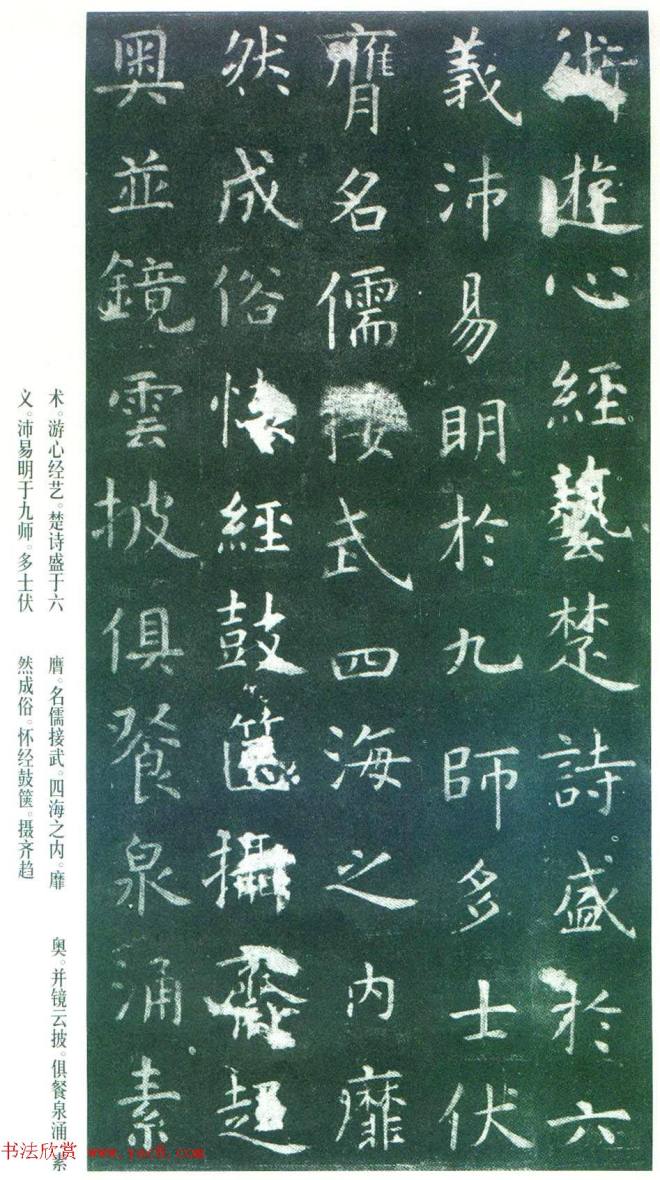 術遊心經藝楚詩盛於六
義沛易明於九師多士伏
膺名儒接武四海之内靡
然成俗懷經鼓篋攝齋趍
奥並鏡雲披俱飡泉涌素
术。游心经艺。楚诗盛于六
义。沛易明于九师。多士伏
膺。名儒接武。四海之内。靡
然成俗。怀经鼓箧。摄齐趋
奥。并镜云披。俱餐泉涌。素
书法欣赏 www.yac8.com